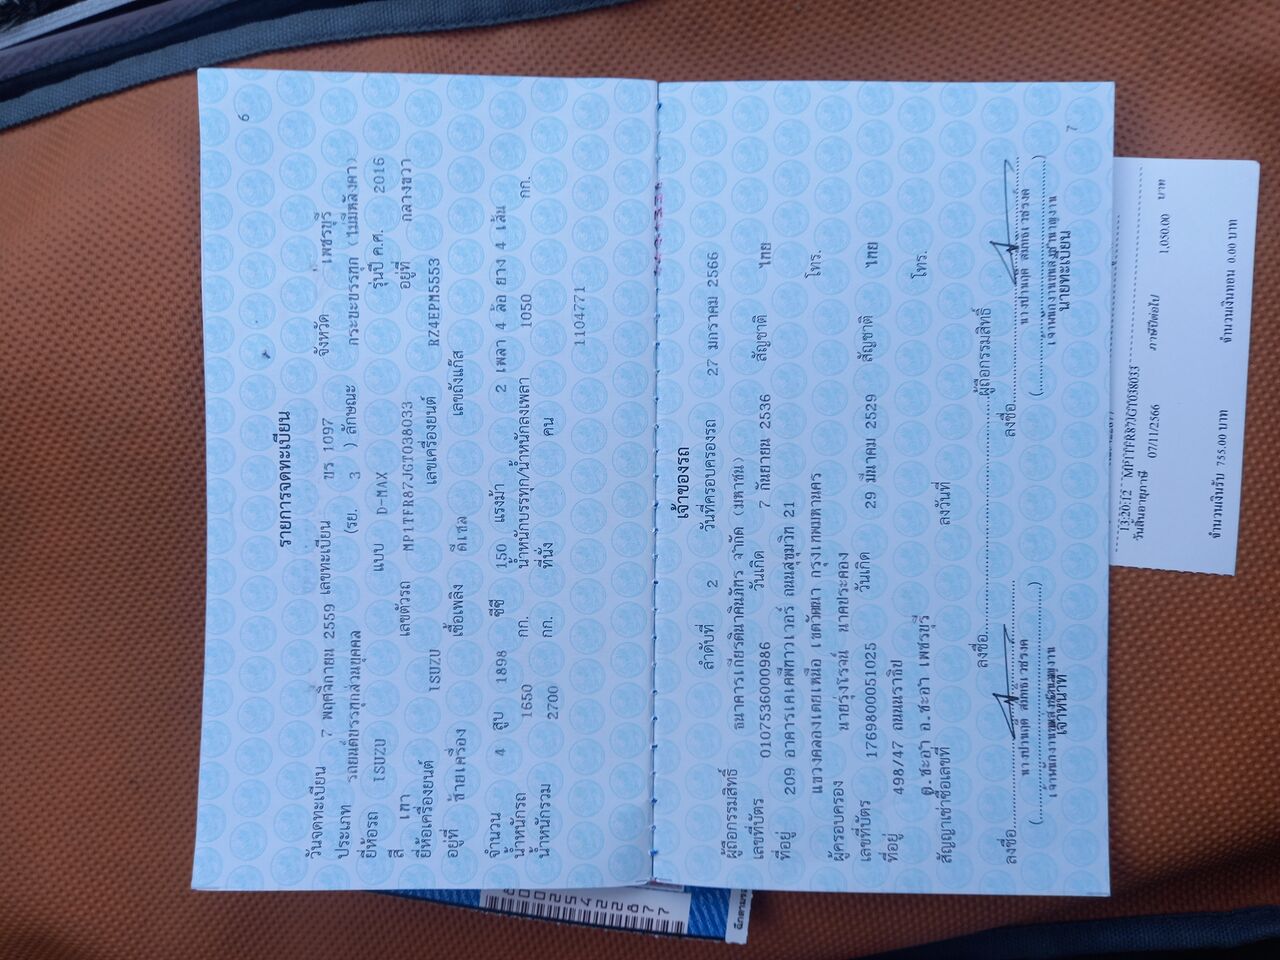 6
รายการจดทะเบียน
วันจดทะเบียน 7 พฤศจิกายน 2559 เลขทะเบียน บร 1097 จังหวัด เพชรบุรี
ประเภท รถยนต์บรรทุกส่วนบุคคล (รย. 3 ) ลักษณะ กระบะบรรทุก (ไม่มีหลังคา)
ยี่ห้อรถ ISUZU แบบ D-MAX รุ่นปี ค.ศ. 2016
สี เทา เลขตัวรถ MP1TFR87JGT038033 อยู่ที่ กลางขวา
ยี่ห้อเครื่องยนต์ ISUZU เลขเครื่องยนต์ RZ4EPM5553
อยู่ที่ ซ้ายเครื่อง เชื้อเพลิง ดีเซล เลขถังแก๊ส
จำนวน 4 สูบ 1898 ซีซี 150 แรงม้า 2 เพลา 4 ล้อ ยาง 4 เส้น
น้ำหนักรถ 1650 กก. น้ำหนักบรรทุก/น้ำหนักลงเพลา 1050 กก.
น้ำหนักรวม 2700 กก. ที่นั่ง คน
1104771
เจ้าของรถ
ลำดับที่ 2 วันที่ครอบครองรถ 27 มกราคม 2566
ผู้ถือกรรมสิทธิ์ ธนาคารเกียรตินาคินภัทร จำกัด (มหาชน)
เลขที่บัตร 0107536000986 วันเกิด 7 กันยายน 2536 สัญชาติ ไทย
ที่อยู่ 209 อาคารเคเคพีทาวเวอร์ ถนนสุขุมวิท 21
แขวงคลองเตยเหนือ เขตวัฒนา กรุงเทพมหานคร โทร.
ผู้ครอบครอง นายรุ่งโรจน์ นาคประคอง
เลขที่บัตร 1769800051025 วันเกิด 29 มีนาคม 2529 สัญชาติ ไทย
ที่อยู่ 498/47 ถนนนราธิป
ต.ชะอำ อ.ชะอำ เพชรบุรี โทร.
สัญญาเช่าซื้อเลขที่ ลงวันที่
ลงชื่อ ผู้ถือกรรมสิทธิ์
ลงชื่อ ลงชื่อ
เจ้าหน้าที่ นายทะเบียน
7
13:20:12 MP1TFR87JGT038033
วันสิ้นอายุภาษี 07/11/2566 ภาษีปีต่อไป 1,050.00 บาท
จำนวนเงินรับ 755.00 บาท จำนวนเงินทอน 0.00 บาท